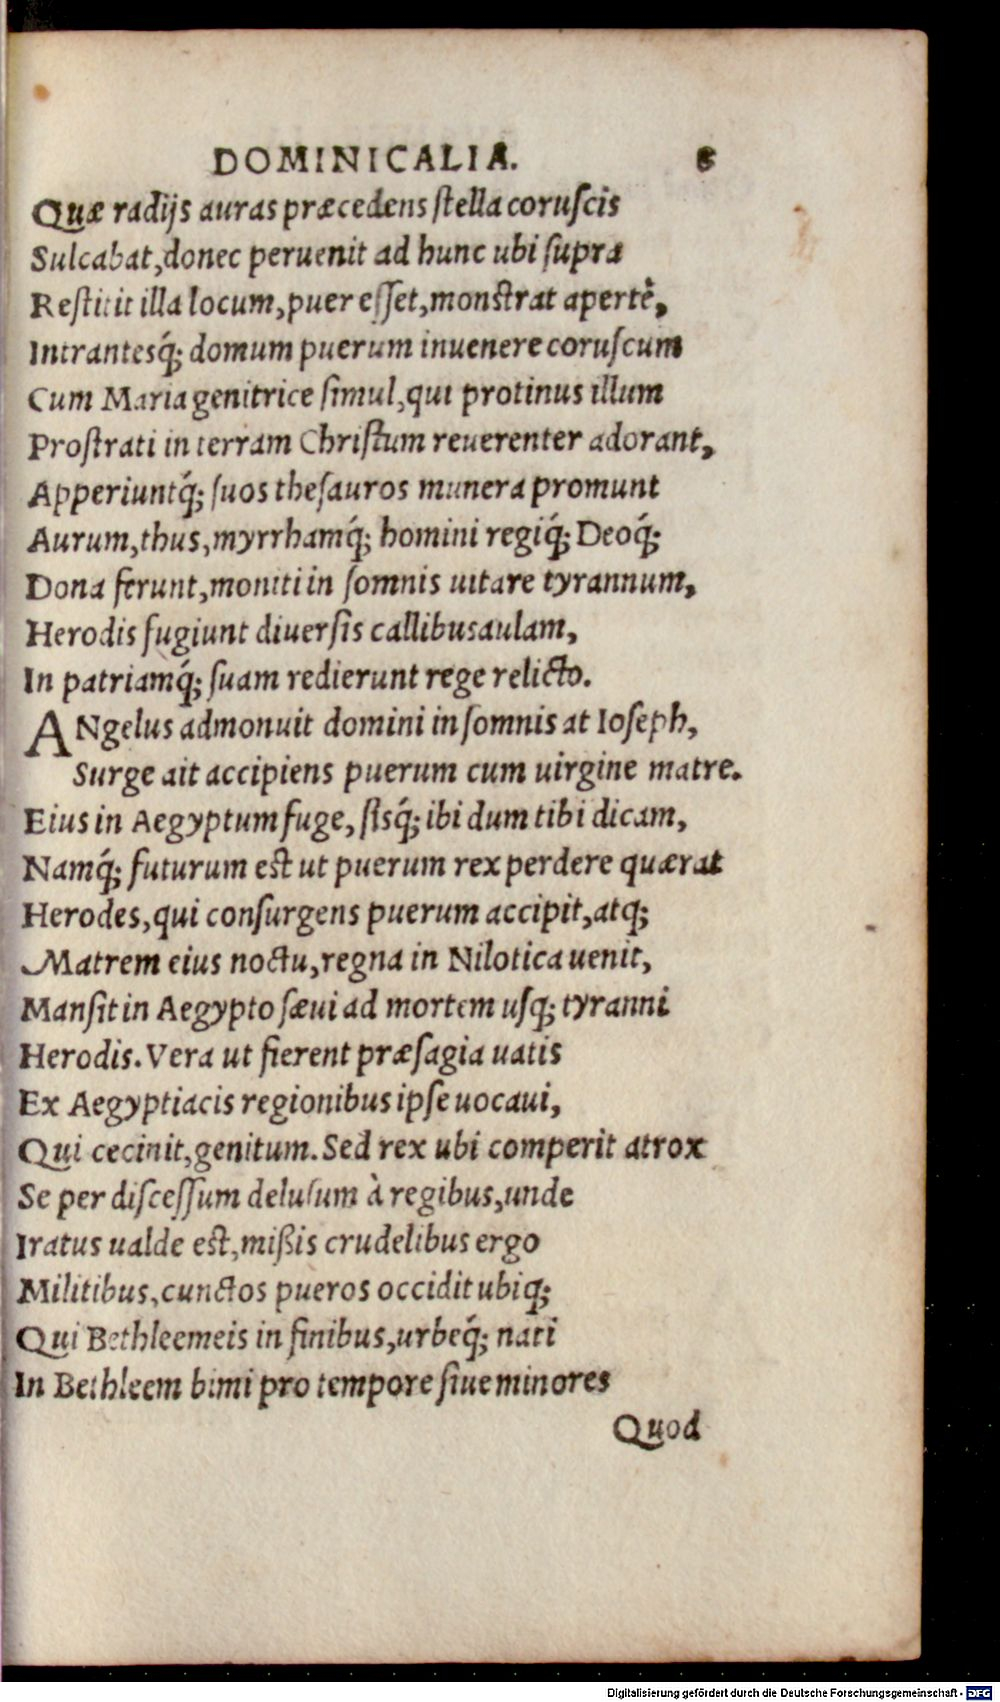 DOMINICALIA.
Quæ radijs auras præcedens ſtella coruſcis
Sulcabat, donec peruenit ad hunc ubi ſupra
Reſtitit illa locum, puer eſſet, monſtrat apertè,
Intrantesq́; domum puerum inuenere coruſcum
Cum Maria genitrice ſimul, qui protinus illum
Proſtrati in terram Chriſtum reuerenter adorant,
Apperiuntq́; ſuos theſauros munera promunt
Aurum, thus, myrrhamq́; homini regiq́; Deoq́;
Dona ferunt, moniti in ſomnis uitare tyrannum,
Herodis fugiunt diuerſis callibus aulam,
In patriamq́; ſuam redierunt rege relicto.
ANgelus admonuit domini in ſomnis at Ioſeph,
Surge ait accipiens puerum cum uirgine matre.
Eius in Aegyptum fuge, ſisq́; ibi dum tibi dicam,
Namq́; futurum eſt ut puerum rex perdere quærat
Herodes, qui conſurgens puerum accipit, atq;
Matrem eius noctu, regna in Nilotica uenit,
Manſit in Aegypto ſæui ad mortem uſq; tyranni
Herodis. Vera ut fierent præſagia uatis
Ex Aegyptiacis regionibus ipſe uocaui,
Qui cecinit, genitum. Sed rex ubi comperit atrox
Se per diſceſſum deluſum à regibus, unde
Iratus ualde eſt, mißis crudelibus ergo
Militibus, cunctos pueros occidit ubiq;
Qui Bethleemeis in finibus, urbeq́; nati
In Bethleem bimi pro tempore ſiue minores
Quod
Digitalisierung gefördert durch die Deutsche Forschungsgemeinschaft - DFG